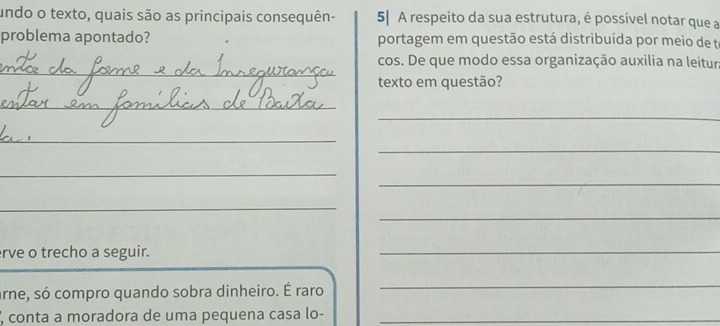 undo o texto, quais são as principais consequên-
problema apontado?
ento da fome e da Insegurança
entar em famílias de Baixa
da.
erve o trecho a seguir.
arne, só compro quando sobra dinheiro. É raro
", conta a moradora de uma pequena casa lo-
5| A respeito da sua estrutura, é possível notar que a
portagem em questão está distribuída por meio de t
cos. De que modo essa organização auxilia na leitur
texto em questão?